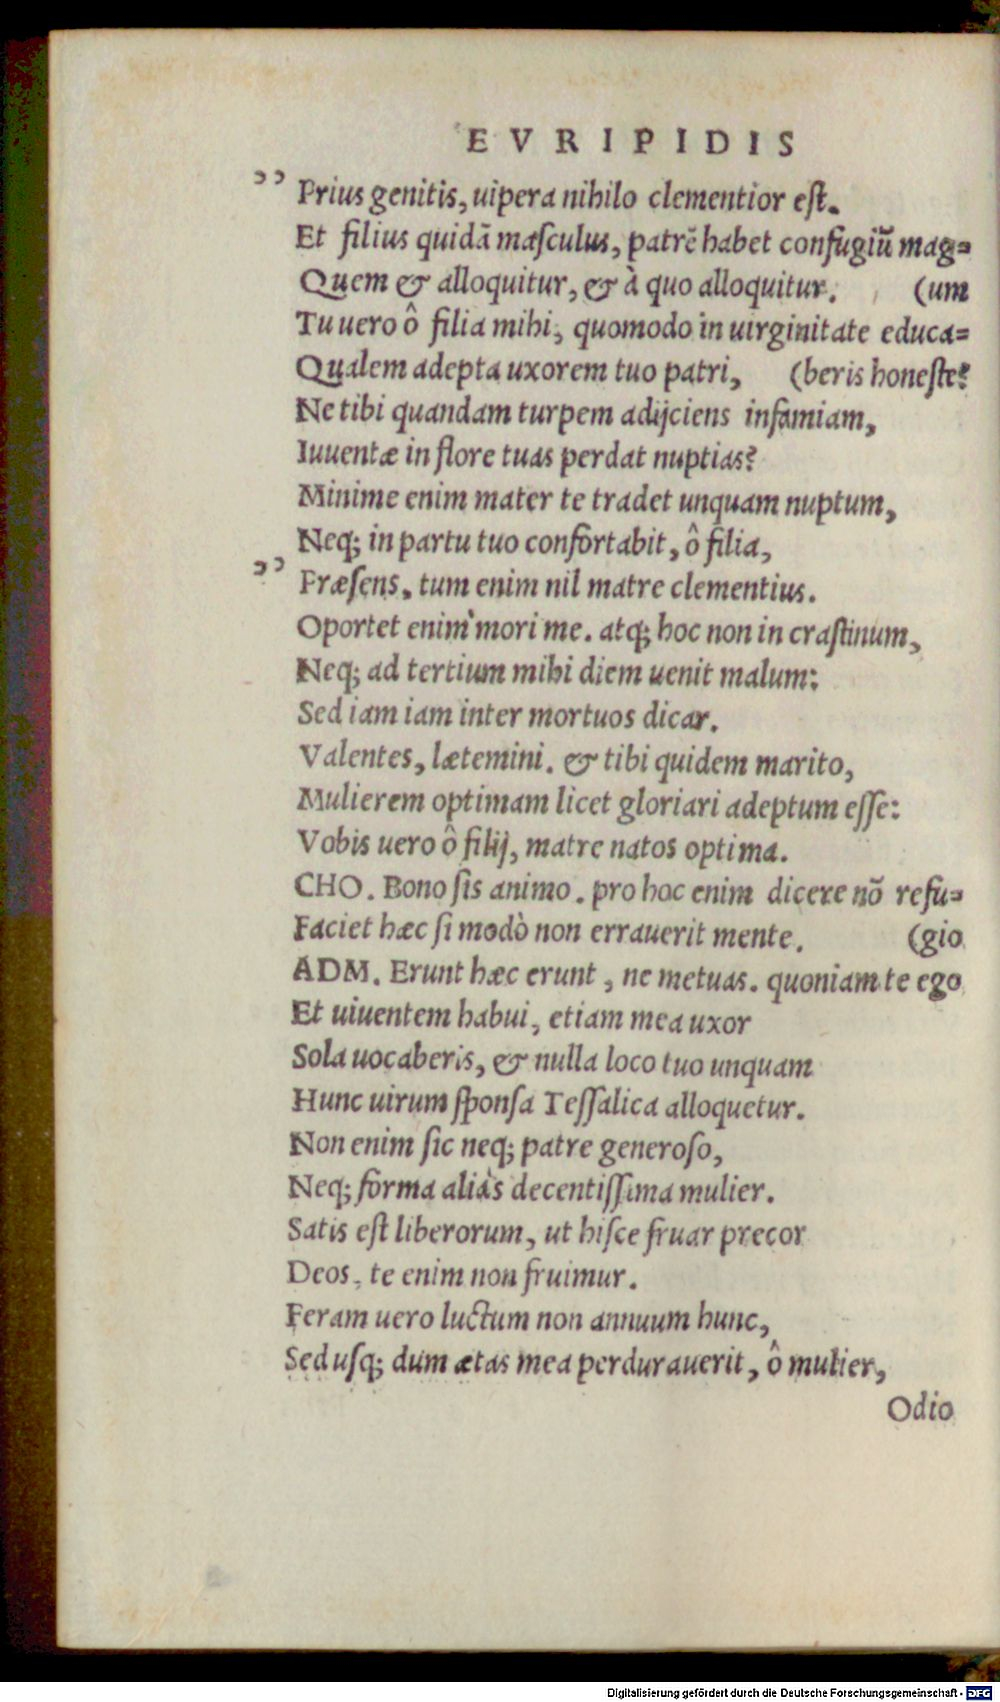 EVRIPIDIS
,, Prius genitis, uipera nihilo clementior eſt.
Et filius quidā maſculus, patrē habet confugiū mag=
Quem & alloquitur, & à quo alloquitur. (um
Tu uero ô filia mihi, quomodo in uirginitate educa=
Qualem adepta uxorem tuo patri, (beris honeſte?
Ne tibi quandam turpem adijciens infamiam,
Iuuentæ in flore tuas perdat nuptias?
Minime enim mater te tradet unquam nuptum,
Neq; in partu tuo confortabit, ô filia,
,, Præſens, tum enim nil matre clementius.
Oportet enim mori me. atq; hoc non in craſtinum,
Neq; ad tertium mihi diem uenit malum:
Sed iam iam inter mortuos dicar.
Valentes, lætemini. & tibi quidem marito,
Mulierem optimam licet gloriari adeptum eſſe:
Vobis uero ô filij, matre natos optima.
CHO. Bono ſis animo. pro hoc enim dicere nō refu=
Faciet hæc ſi modò non errauerit mente. (gio
ADM. Erunt hæc erunt, ne metuas. quoniam te ego
Et uiuentem habui, etiam mea uxor
Sola uocaberis, & nulla loco tuo unquam
Hunc uirum ſponſa Teſſalica alloquetur.
Non enim ſic neq; patre generoſo,
Neq; forma aliàs decentiſſima mulier.
Satis eſt liberorum, ut hiſce fruar precor
Deos, te enim non fruimur.
Feram uero luctum non annuum hunc,
Sed uſq; dum ætas mea perdurauerit, ô mulier,
Odio
Digitalisierung gefördert durch die Deutsche Forschungsgemeinschaft - DFG